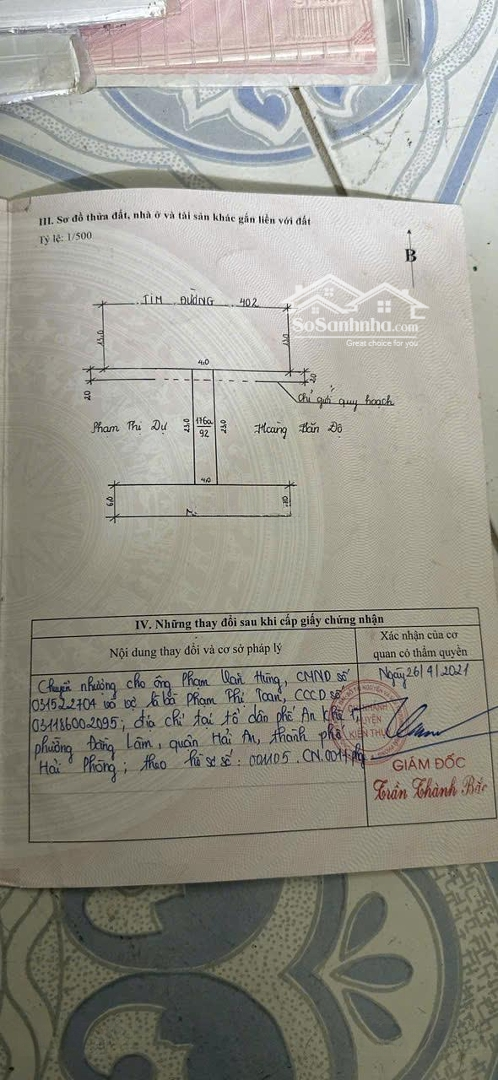 III. Sơ đồ thửa đất, nhà ở và tài sản khác gắn liền với đất
Tỷ lệ: 1/500
B
TIM ĐƯỜNG 402
SoSanhnha.com
Great choice for you
13.0
13.0
4.0
20
20
Chỉ giới quy hoạch
Phạm Thị Dự
23.0
176a
92
23.0
Hoàng Văn Độ
4.0
6.0
IV. Những thay đổi sau khi cấp giấy chứng nhận
Nội dung thay đổi và cơ sở pháp lý
Xác nhận của cơ quan có thẩm quyền
Chuyển nhượng cho ông Phạm Văn Hưng, CMND số
031522704 và vợ là bà Phạm Thị Toan, CCCD số
031186002095; địa chỉ tại tổ dân phố An Khê
phường Đằng Lâm, quận Hải An, thành phố
Hải Phòng; theo hồ sơ số: 001105. CN.001
Ngày 26/4/2021
HUYỆN
KIẾN THỤY
GIÁM ĐỐC
Trần Thành Bắc